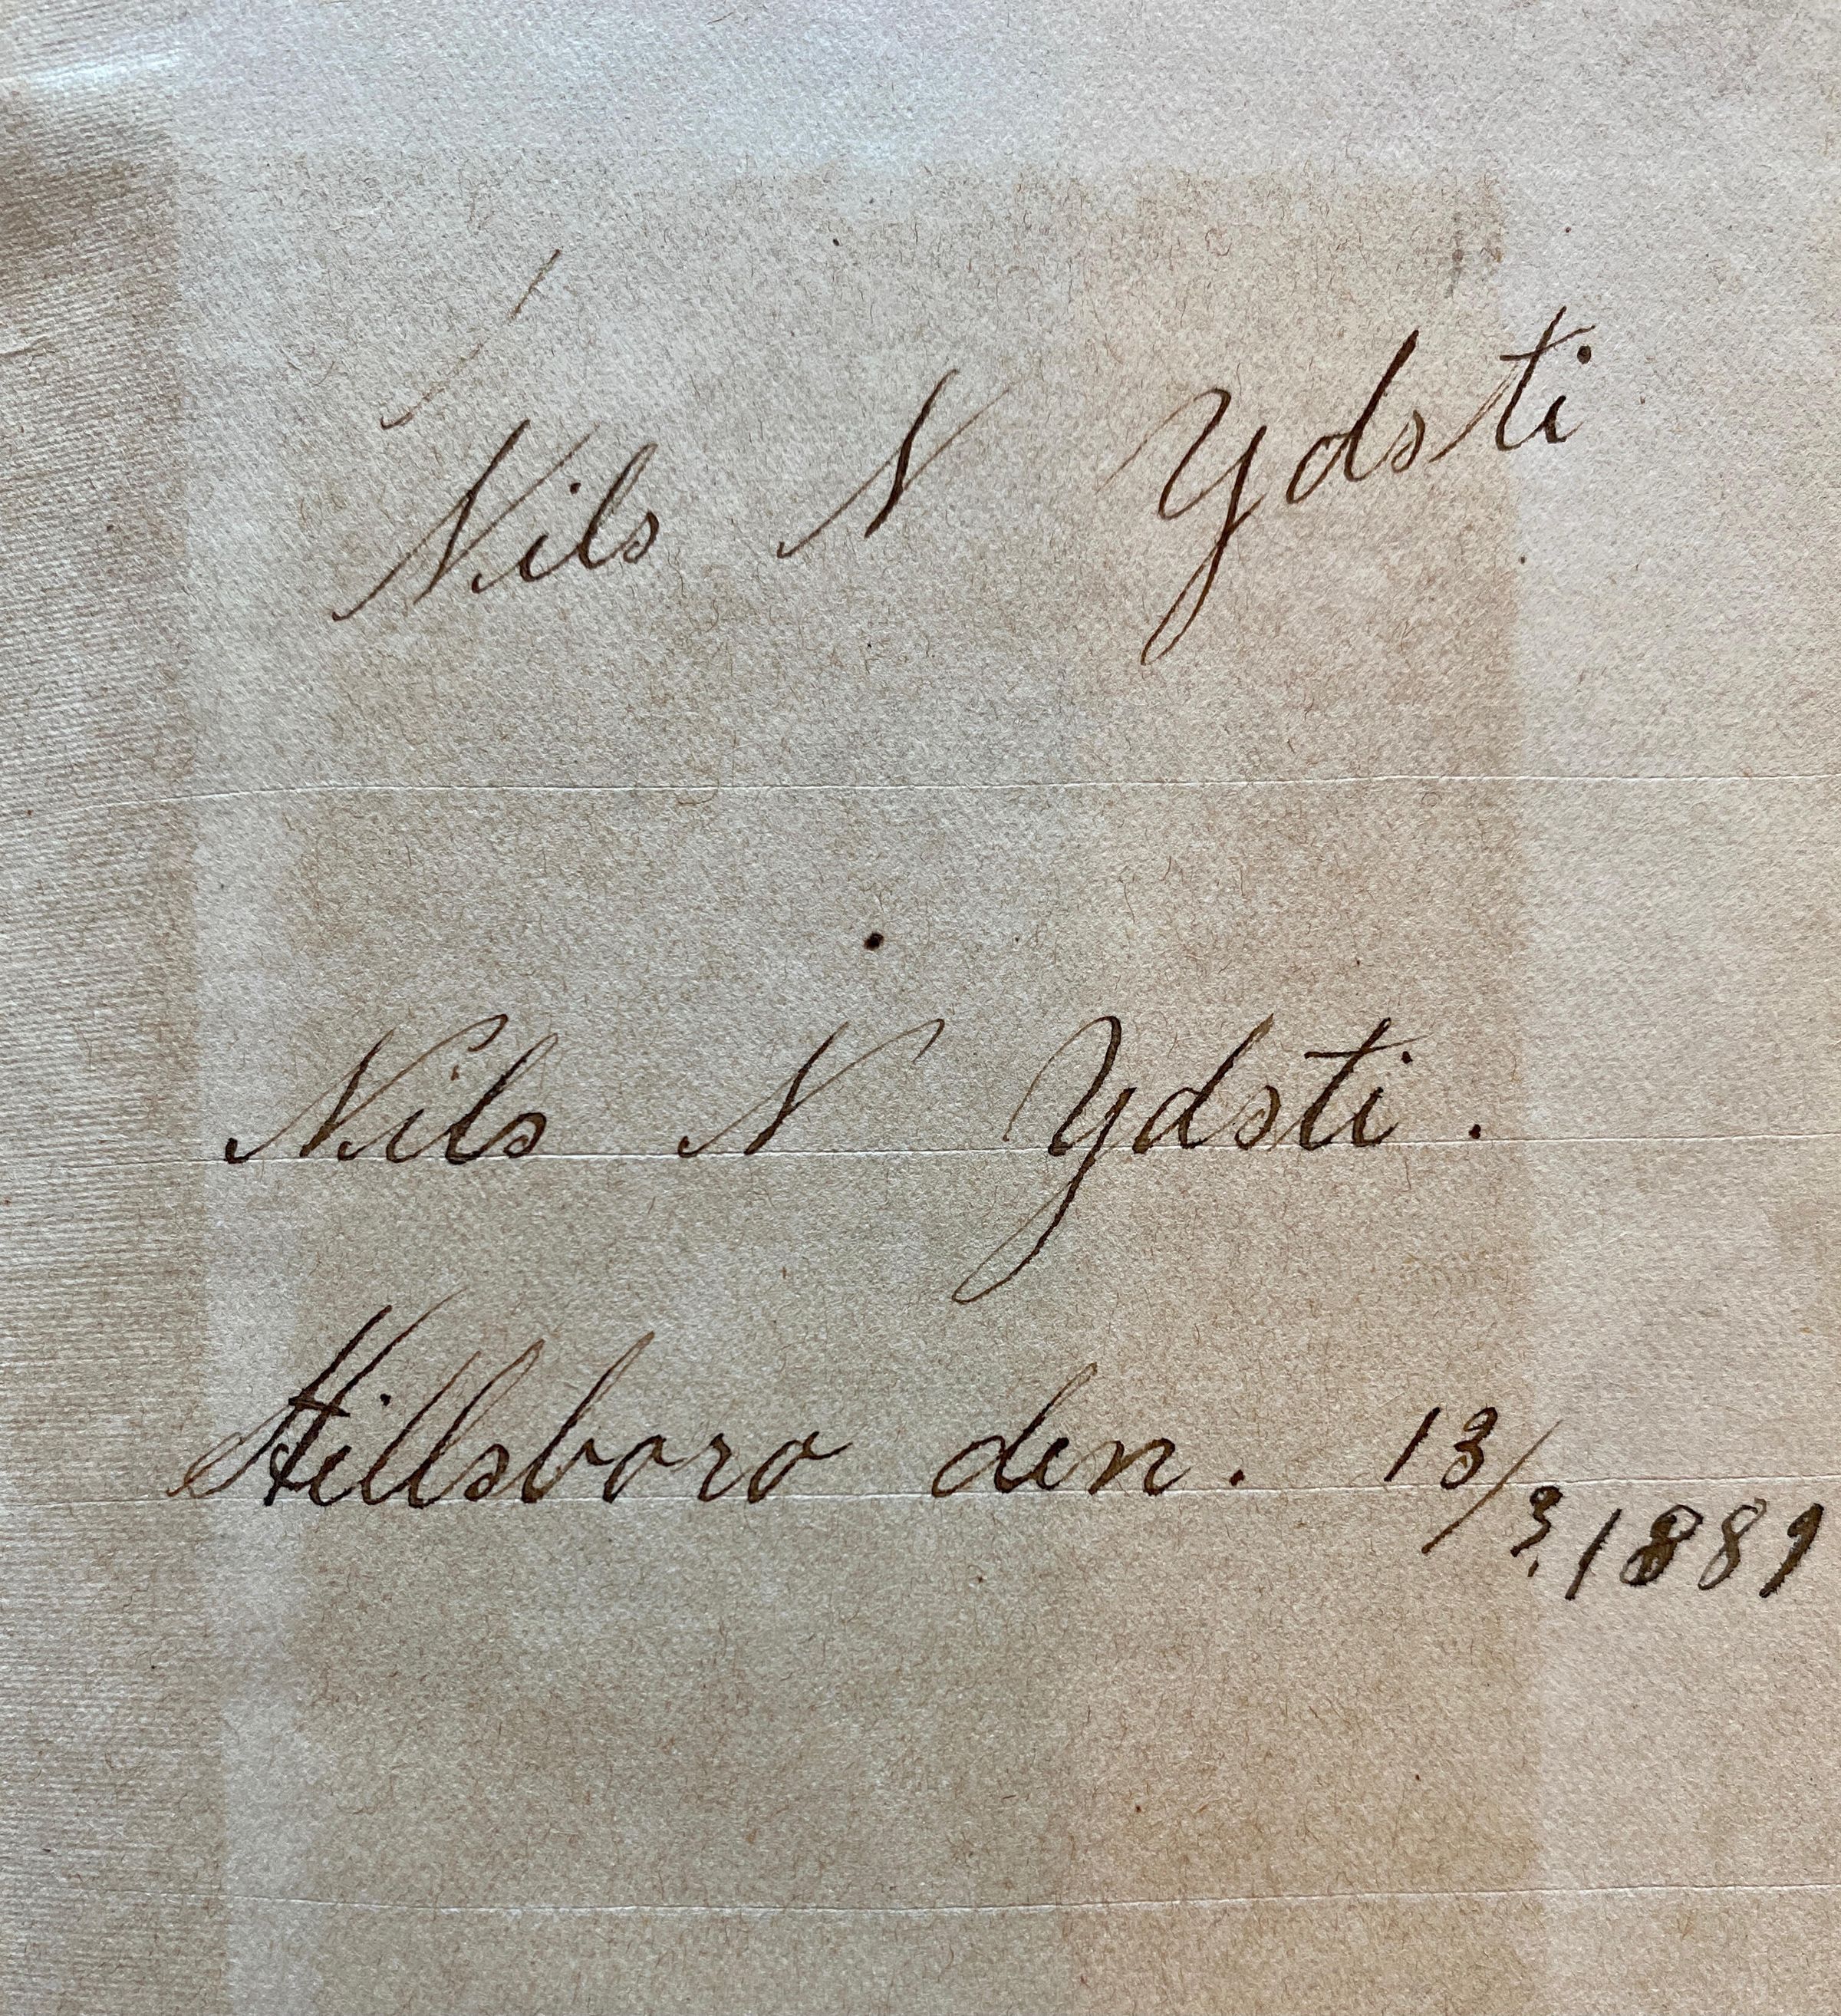 Nils N Ydsti
Nils N Ydsti.
Hillsboro den. 13/3. 1889